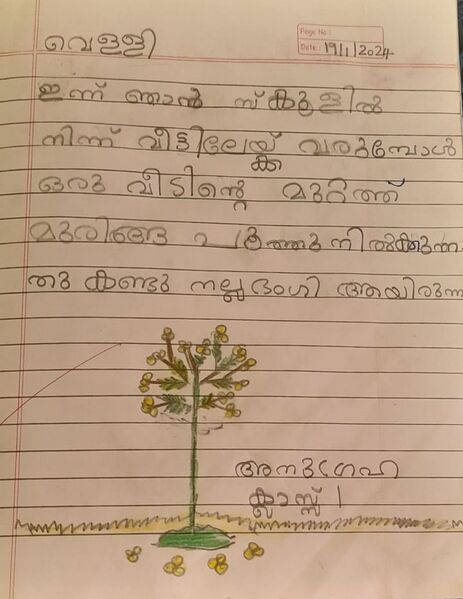 Page No:
വെള്ളി
Date: 19/1/2024
ഇന്ന് ഞാൻ സ്കൂളിൽ
നിന്ന് വീട്ടിലേയ്ക്ക് വരുമ്പോൾ
ഒരു വീടിന്റെ മുറ്റത്ത്
മുരിങ്ങ പൂത്തു നിൽക്കുന്ന
തു കണ്ടു നല്ല ഭംഗി ആയിരുന്നു
ക്ലാസ്സ് 1